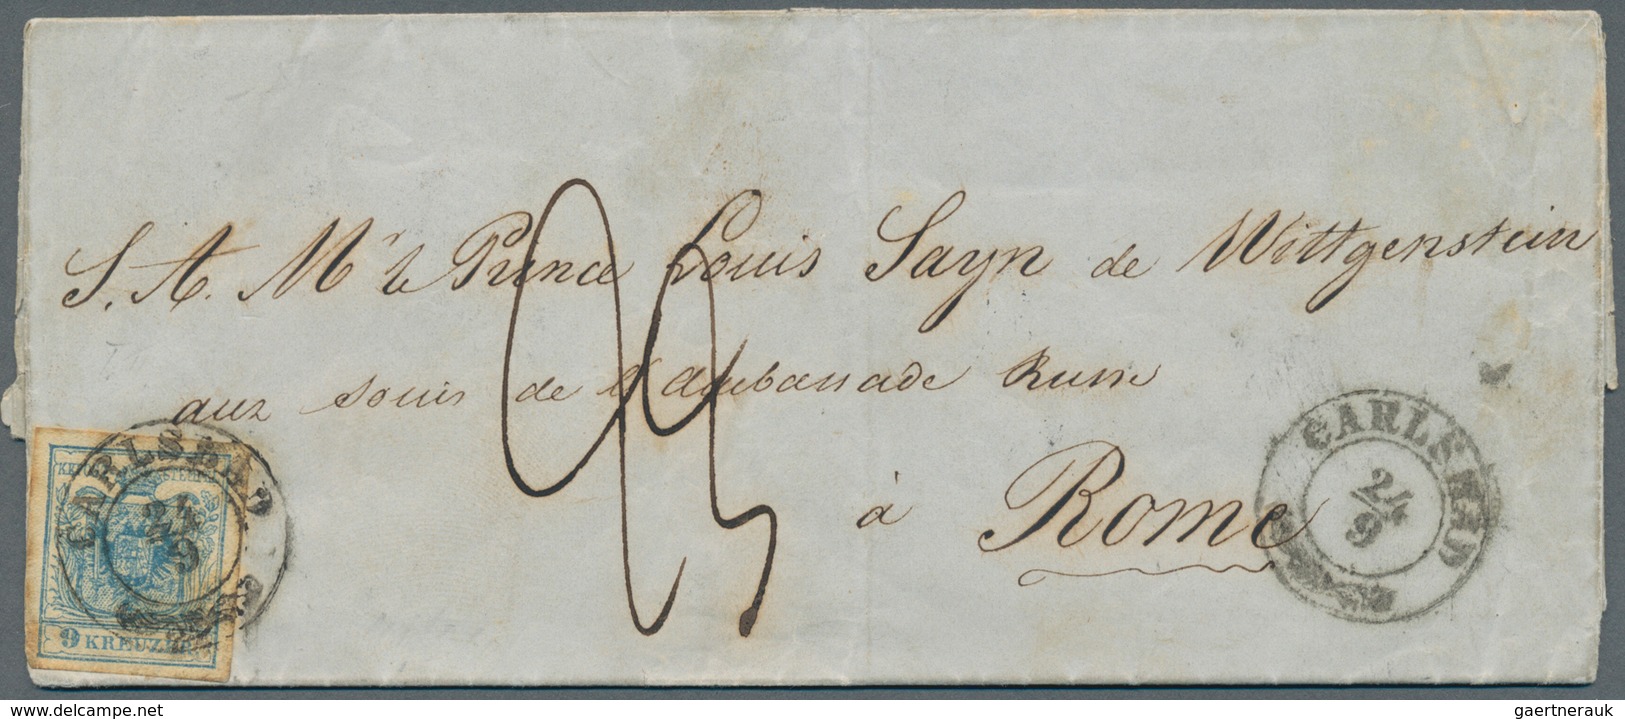 S. A. Mr le Prince Louis Sayn de Wittgenstein
aux soins de l'ambassade Russe
à
Rome
CARLSBAD
24
9
CARLSBAD
24
9
9 KREUZER
www.delcampe.net
gaertnerauk